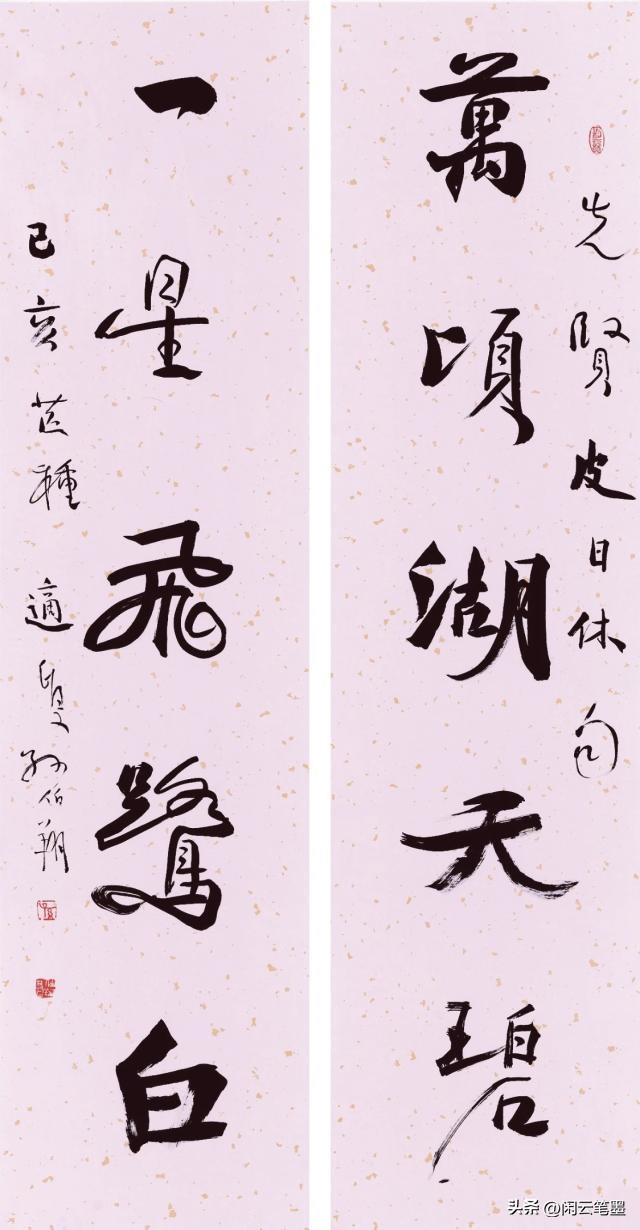 先賢皮日休句
萬頃湖天碧
一星飛鷺白
己亥芒種適叟孫伯翔
头条 @闲云笔墨